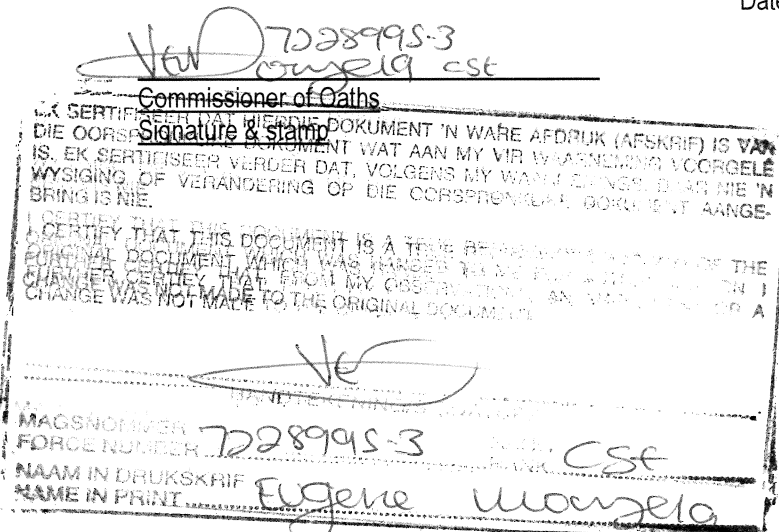 Date
7228995-3
cst
Commissioner of Oaths
Signature & stamp
EK SERTIFISEER DAT HIERDIE DOKUMENT 'N WARE AFDRUK (AFSKRIF) IS VAN
DIE OORSPRONKLIKE DOKUMENT WAT AAN MY VIR WAARNEMING VOORGELÊ
IS. EK SERTIFISEER VERDER DAT, VOLGENS MY WAARNEMINGS, DAAR NIE 'N
WYSIGING OF VERANDERING OP DIE OORSPRONKLIKE DOKUMENT AANGE-
BRING IS NIE.
I CERTIFY THAT THIS DOCUMENT IS A TRUE OF THE
ORIGINAL DOCUMENT WHICH WAS HANDED TO ME I
FURTHER CERTIFY THAT, FROM MY OBSERVATIONS, AN OR A
CHANGE WAS NOT MADE TO THE ORIGINAL DOCUMENT.
MAGSNOMMER
FORCE NUMBER 7228995-3 RANK CSt
NAAM IN DRUKSKRIF
NAME IN PRINT Eugene